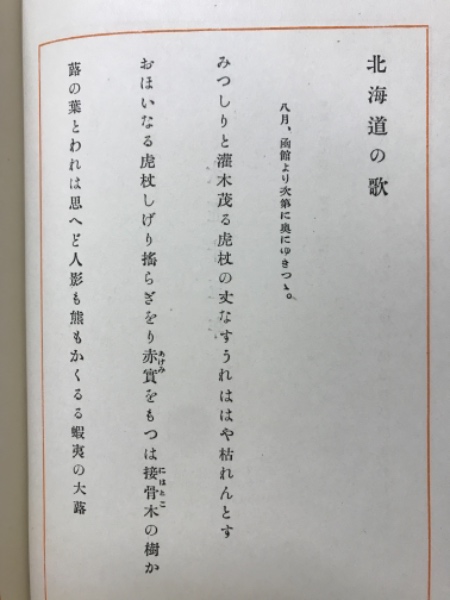 北海道の歌
八月、函館より次第に奥にゆきつゝ。
みつしりと灌木茂る虎杖の丈なすうれははや枯れんとす
おほいなる虎杖しげり搖らぎをり赤實をもつは接骨木の樹か
あけみ
にはとこ
蕗の葉とわれは思へど人影も熊もかくるる蝦夷の大蕗